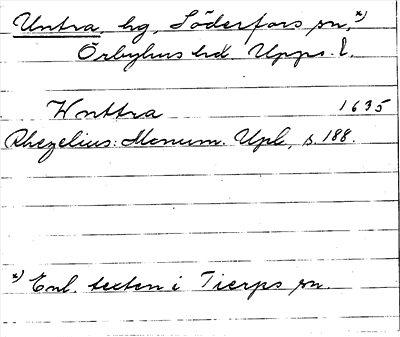 Untra, hg, Söderfors sn,ˣ⁾
Örbyhus hd. Upps. l.
Wnttra 1635
Rhezelius: Monum. Upl., s. 188.
ˣ⁾ Enl. texten i Tierps sn.